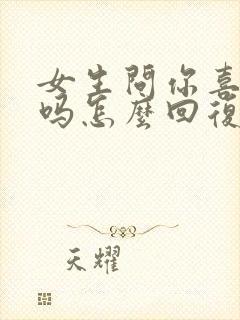 女生問你喜
吗怎麼回復
天耀